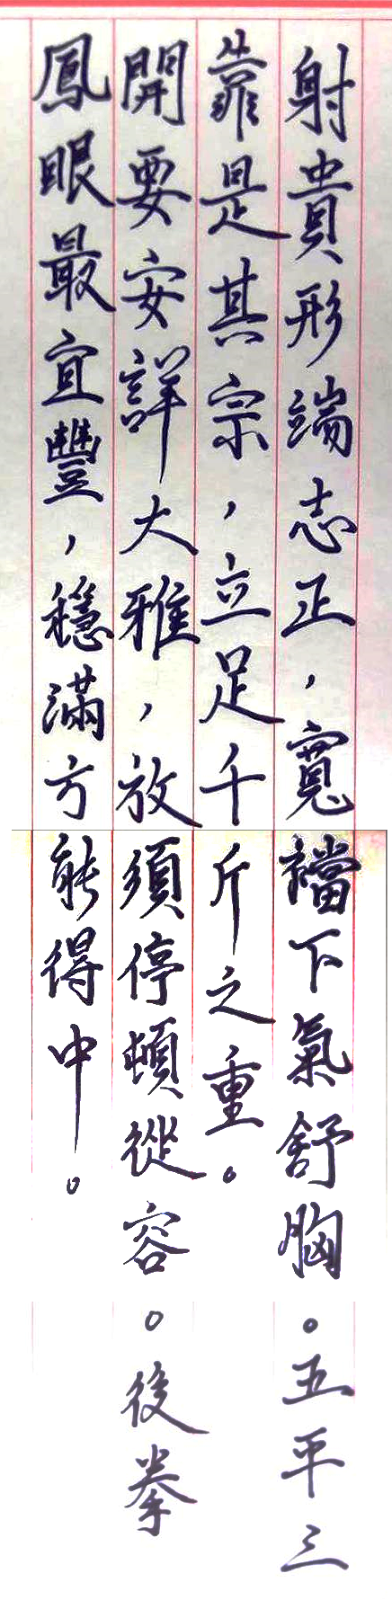 射貴形端志正，寬襠下氣舒胸。五平三
靠是其宗，立足千斤之重。
開要安詳大雅，放須停頓從容。後拳
鳳眼最宜豐，穩滿方能得中。